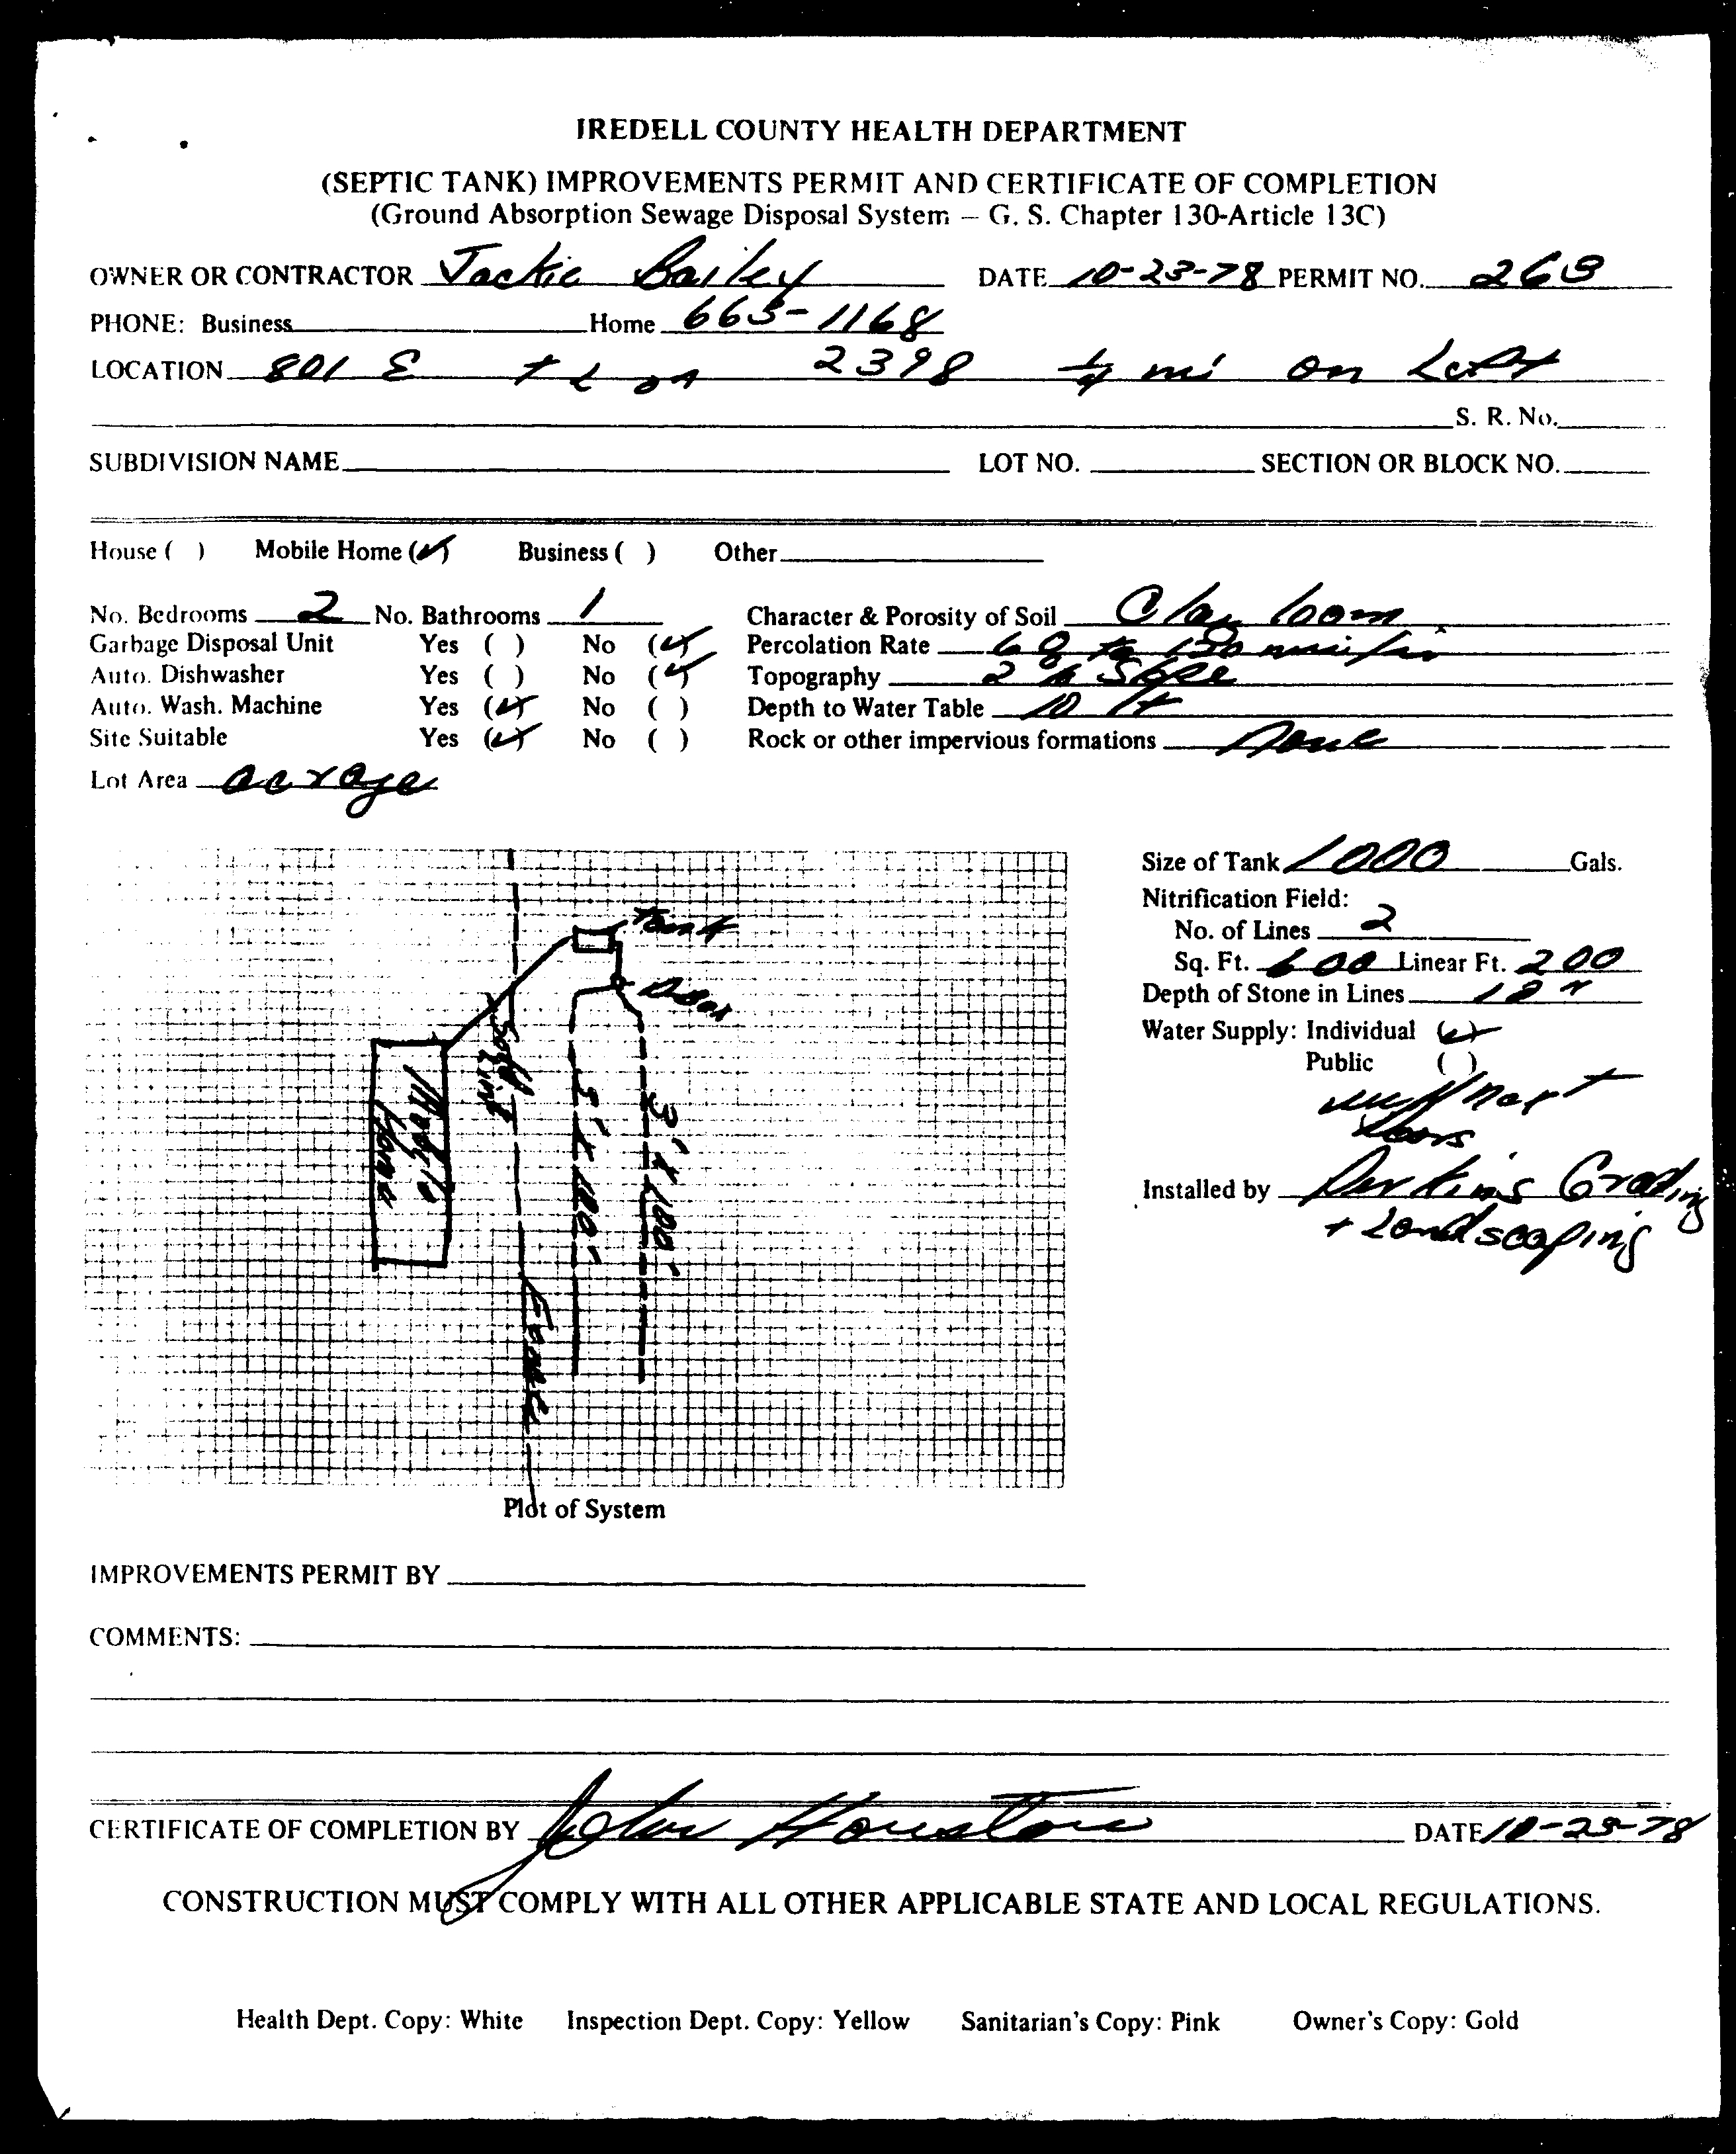 IREDELL COUNTY HEALTH DEPARTMENT
(SEPTIC TANK) IMPROVEMENTS PERMIT AND CERTIFICATE OF COMPLETION
(Ground Absorption Sewage Disposal System – G. S. Chapter 130-Article 13C)
OWNER OR CONTRACTOR Jackie Bailey DATE 10-23-78 PERMIT NO. 263
PHONE: Business Home 663-1168
LOCATION 801 E + L on 2398 1/4 mi on Left
S. R. No.
SUBDIVISION NAME LOT NO. SECTION OR BLOCK NO.
House ( ) Mobile Home (✓) Business ( ) Other
No. Bedrooms 2 No. Bathrooms 1 Character & Porosity of Soil Clay loom
Garbage Disposal Unit Yes ( ) No (✓) Percolation Rate 60 to 120 min/in
Auto. Dishwasher Yes ( ) No (✓) Topography 2 % Slope
Auto. Wash. Machine Yes (✓) No ( ) Depth to Water Table 10 ft
Site Suitable Yes (✓) No ( ) Rock or other impervious formations None
Lot Area acrage
Size of Tank 1000 Gals.
Nitrification Field:
No. of Lines 2
Sq. Ft. 600 Linear Ft. 200
Depth of Stone in Lines
Water Supply: Individual (✓)
Public ( )
next
Installed by Perkins Grading
+ Landscaping
Tank
D Box
Solid
Line
Mobile
Home
3' x 100'
3' x 100'
Fence
Plot of System
IMPROVEMENTS PERMIT BY
COMMENTS:
CERTIFICATE OF COMPLETION BY John Houston DATE 10-23-78
CONSTRUCTION MUST COMPLY WITH ALL OTHER APPLICABLE STATE AND LOCAL REGULATIONS.
Health Dept. Copy: White Inspection Dept. Copy: Yellow Sanitarian's Copy: Pink Owner's Copy: Gold